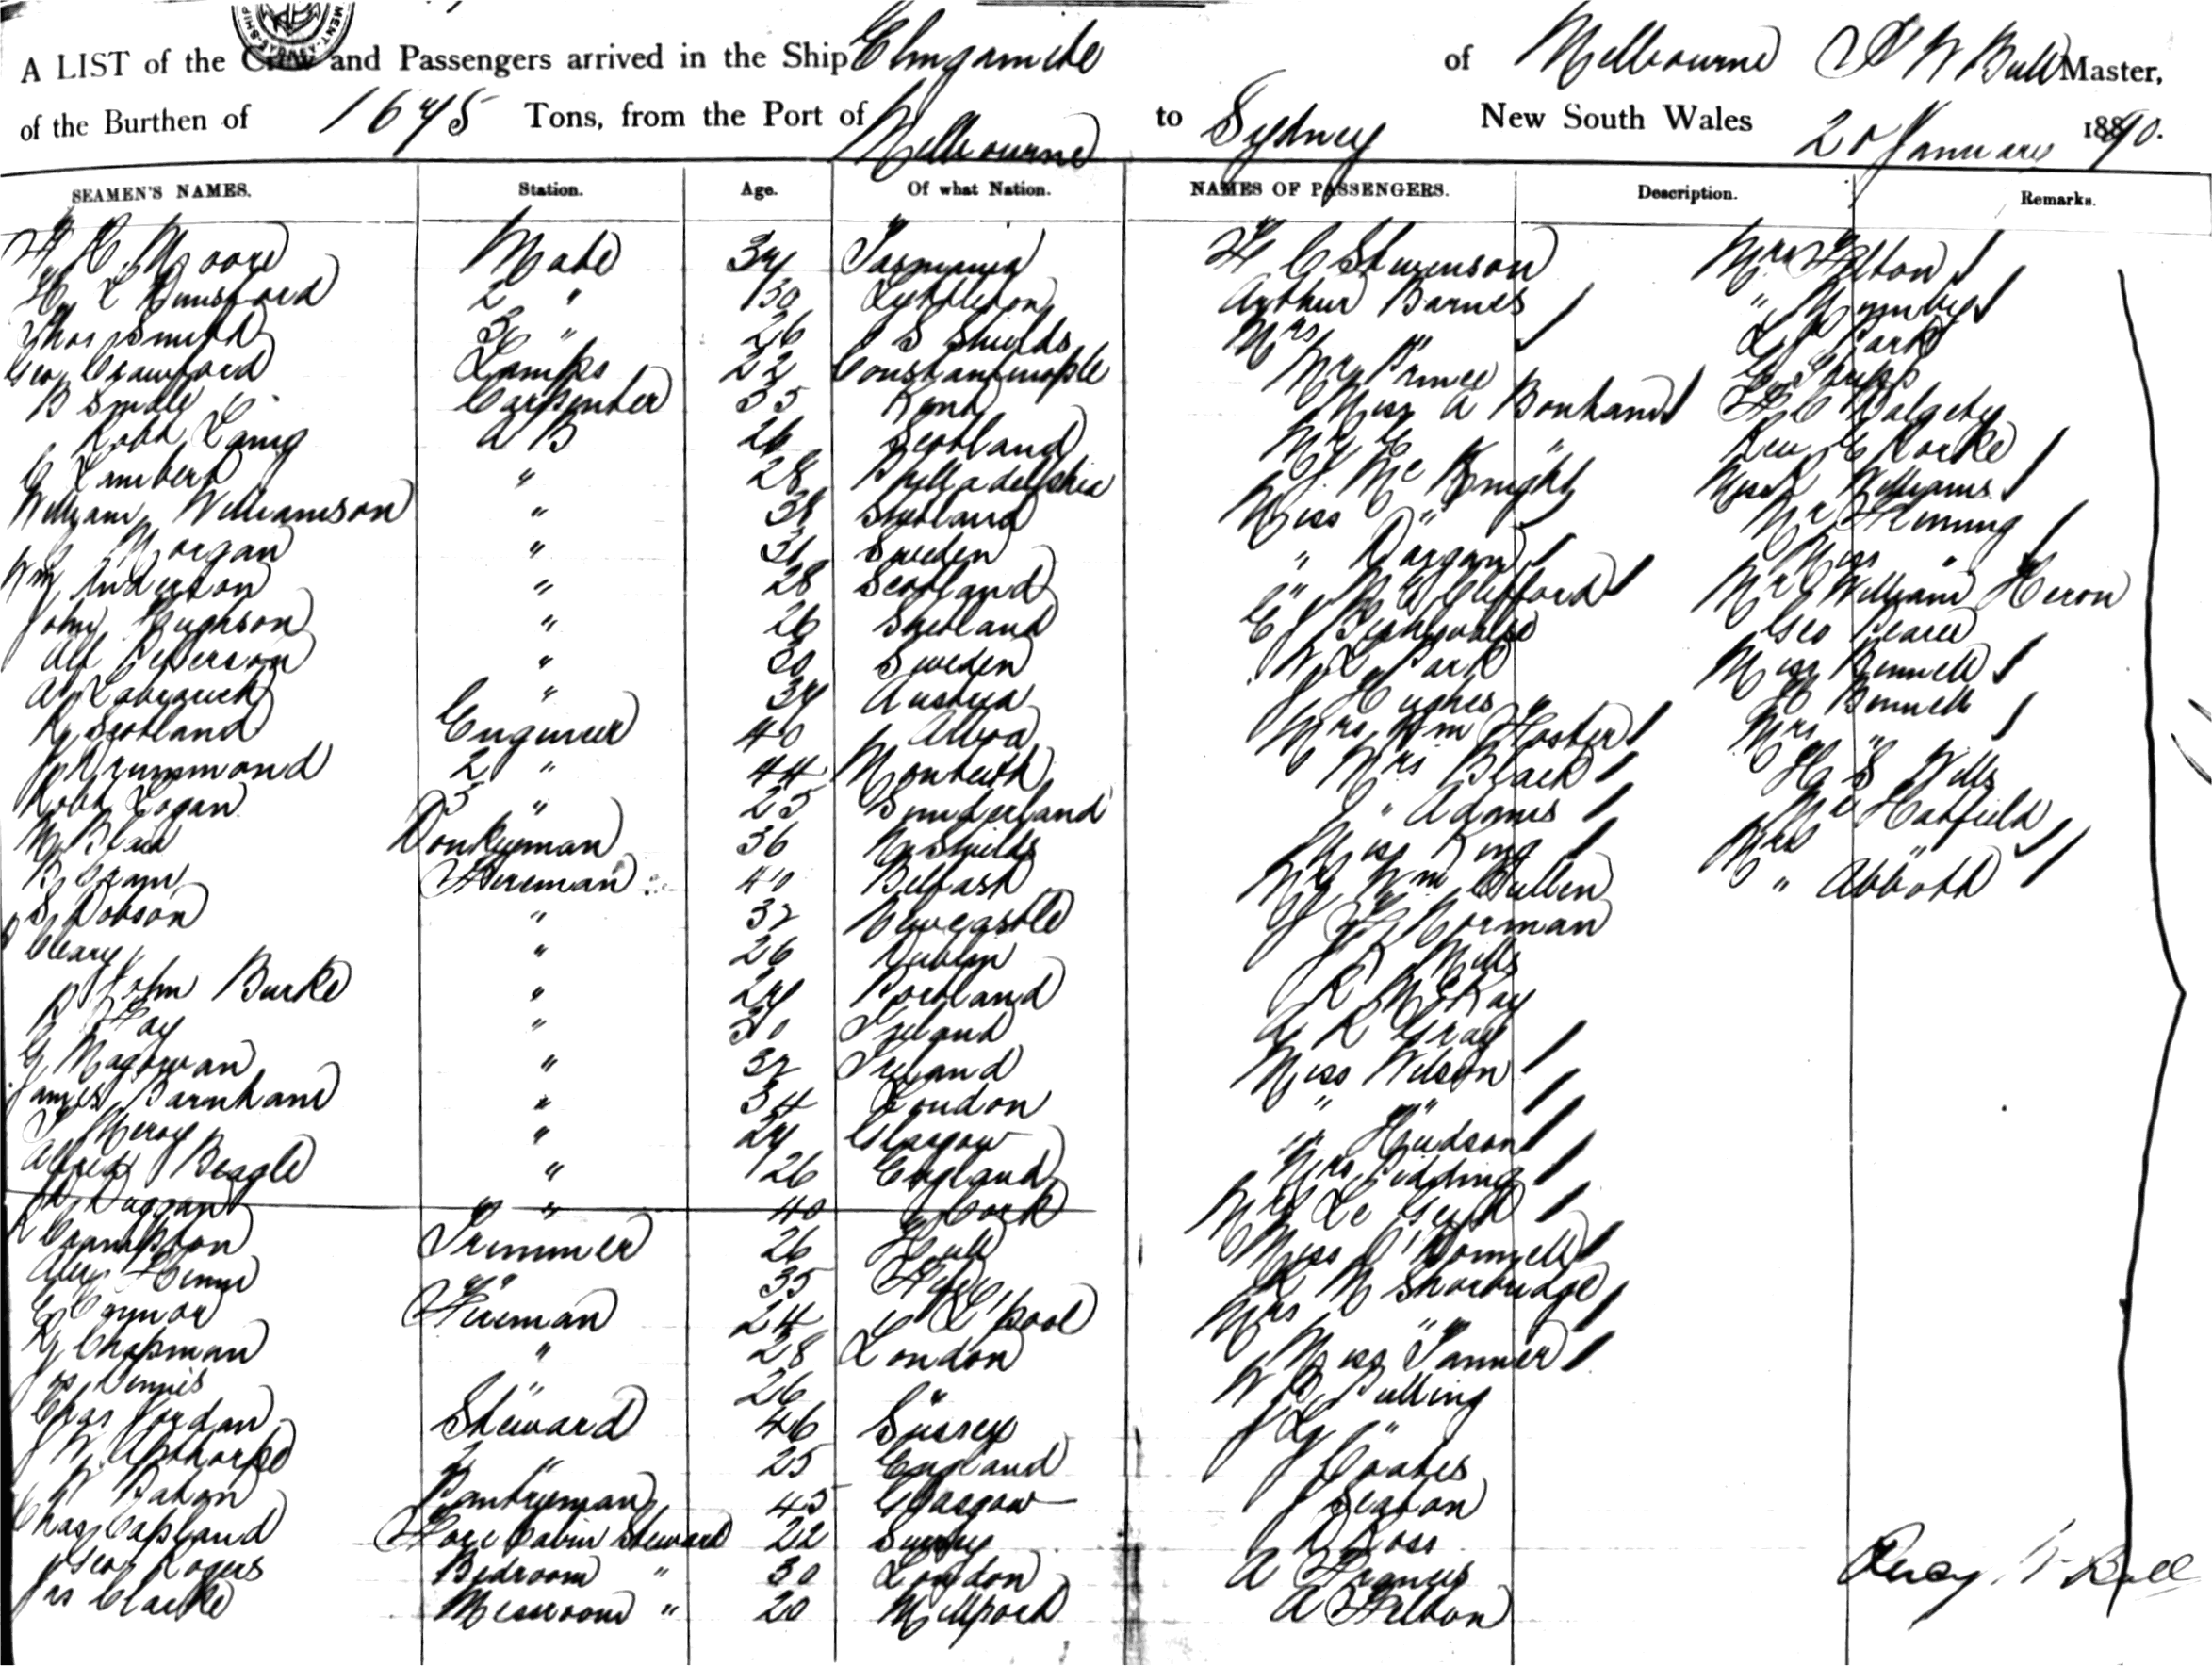 A LIST of the Crew and Passengers arrived in the Ship Elingamite of Melbourne P W Bull Master,
of the Burthen of 1675 Tons, from the Port of Melbourne to Sydney New South Wales 20 January 1890.
SEAMEN'S NAMES. Station. Age. Of what Nation. NAMES OF PASSENGERS. Description. Remarks.
H Moore Mate 34 Tasmania H C Stevenson Mrs Felton
2 " 30 Lyttleton Arthur Barnes "
Thos Smith 3 " 26 S Shields Mrs " L Park
Geo Crawford Lamps 22 Constantinople Mr Prince G
B Smale Carpenter 35 Kent Miss A Bonham H C Dalgety
Robt Laing A B 26 Scotland Mr C " Rev C Rorke
C Lambert " 28 Philladelphia J McKnight Miss Williams
William Williamson " 38 Shetland Miss " Mr Fleming
Morgan " 31 Sweden " Dargan Miss "
Wm Anderson " 28 Scotland " Clifford Mr William Heron
John Hughson " 26 Shetland C J Geo Pearce
Alf Peterson " 30 Sweden W L Park Miss Bennett
A " 34 Austria J Hughes H Bennett
R Scotland Engineer 40 Alloa Mrs Wm Foster Mrs "
J Drummond 2 " 44 Monteith Mrs Black H S Wills
Robt Logan 3 " 25 Sunderland " Adams Mr Hatfield
M Blair Donkeyman 36 N Shields Miss King Mrs "
Fireman 40 Belfast Mr Wm Cullen " Abbott
S Dobson " 32 Newcastle J Norman
Cleary " 26 Dublin J Mills
John Burke " 24 Portland R McKay
Hay " 30 Ireland A R Gray
G Magowan " 32 Ireland Miss Wilson
James Barnham " 34 London " "
" 24 Glasgow " Hudson
Alfred Beagle " 26 England Mrs Pidding
Duggan " 40 Cork Mrs Le
Crampton Trimmer 26 Hull Miss O'Donnell
Alex " 35 Fife R M Shorbridge
Fireman 24 L'pool Mrs "
Chapman " 28 London Miss Tanner
Jas Dennis " 26 " W B Pulling
Chas Jordan Steward 46 Sussex J L "
J W Apthorpe 2 " 25 England J Coates
W Paton Pantryman 45 Glasgow J Seaton
Chas Copland Fore Cabin Steward 22 Surrey R Ross
Geo Rogers Bedroom " 30 London A Francis
Jas Clarke Messroom " 20 Millport A Felton
Percy W Bull